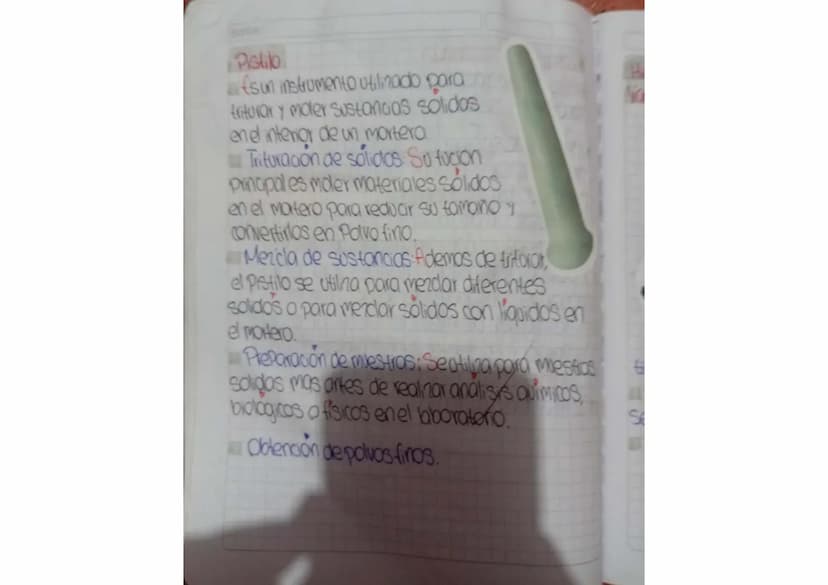 Pistilo
Es un instrumento utilizado para
triturar y moler sustancias sólidos
en el interior de un mortero.
Trituración de sólidos: Su fución
principal es moler materiales sólidos
en el mortero para reducir su tamaño y
convertirlos en Polvo fino.
Mezcla de sustancias: Ademas de triturar,
el pistilo se utiliza para mezclar diferentes
solidos o para mezclar sólidos con líquidos en
el mortero.
Preparación de muestras: Se utiliza para muestras
solidas mas antes de realizar análisis químicos,
biológicos o físicos en el laboratorio.
Obtención de polvos finos.